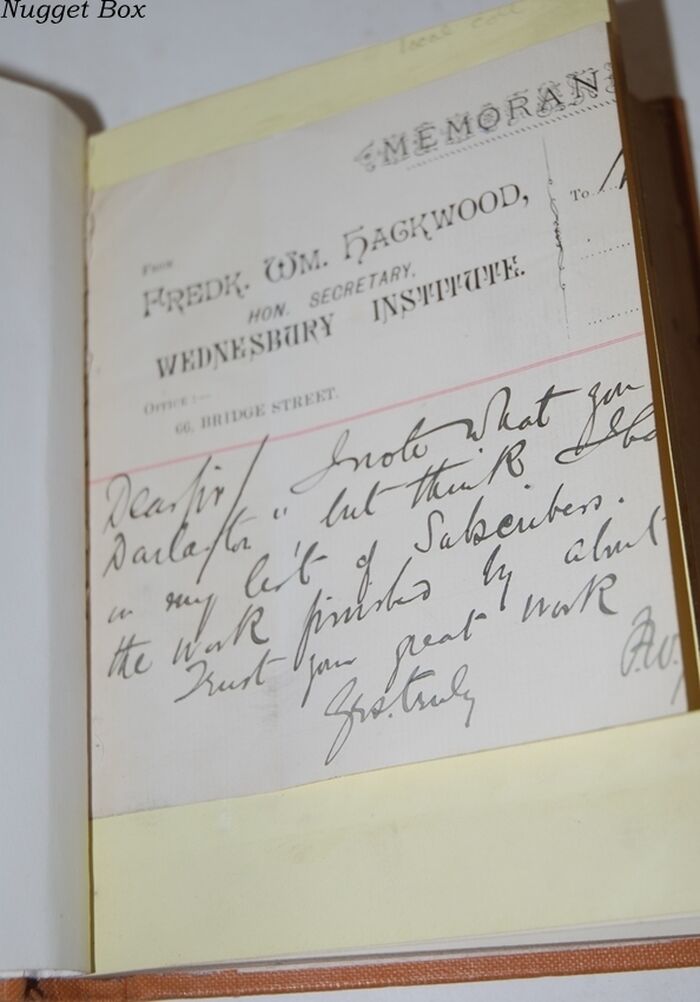 Nugget Box
MEMORAN
FROM
FREDK. WM. HACKWOOD,
HON. SECRETARY.
WEDNESBURY INSTITUTE.
OFFICE :—
66, BRIDGE STREET.
To
Dear Sir / I note what you
Darlaston " but think I
in my list of Subscribers.
the work finished by about
Trust your great work
Yrs. truly
F.W.